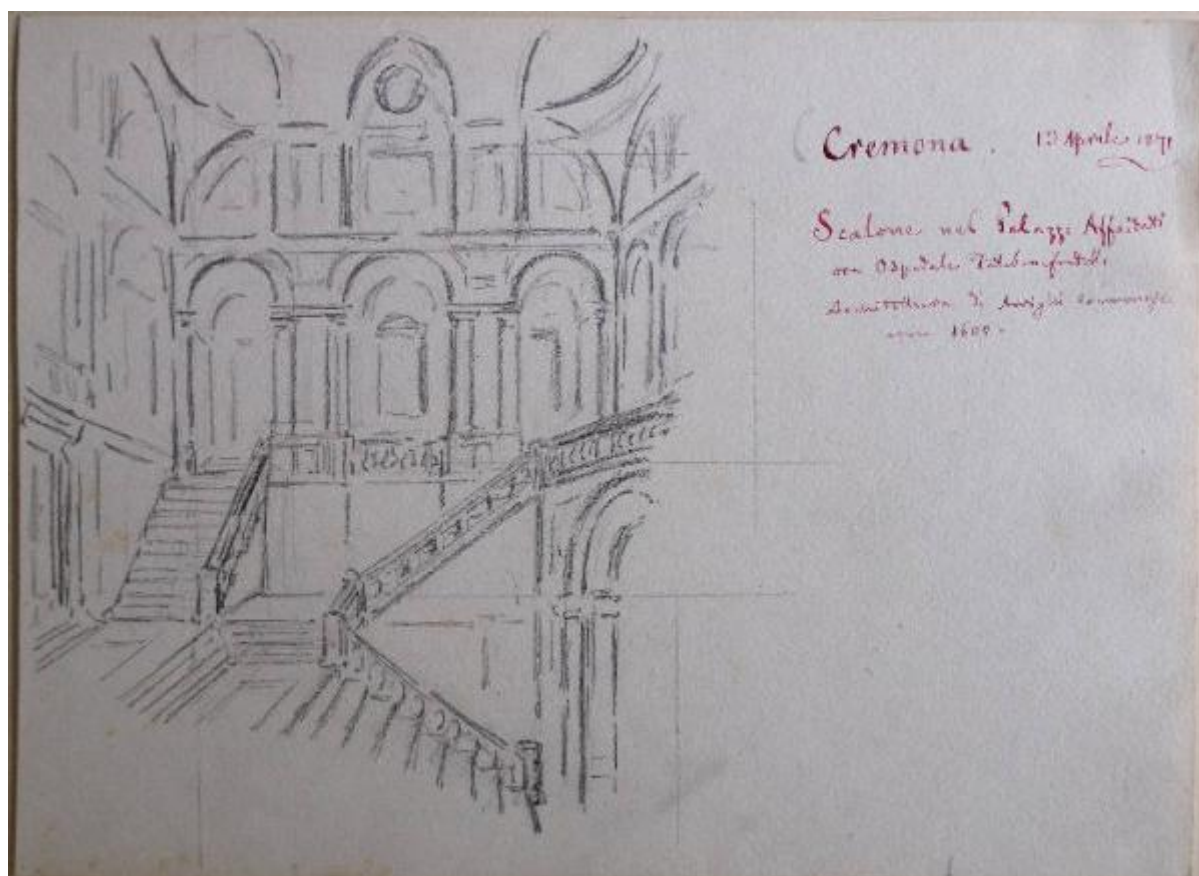 Cremona. 13 Aprile 1871
Scalone nel Palazzo Affaitati
ora Ospedale Fatebenefratelli
Architettura di
1600.